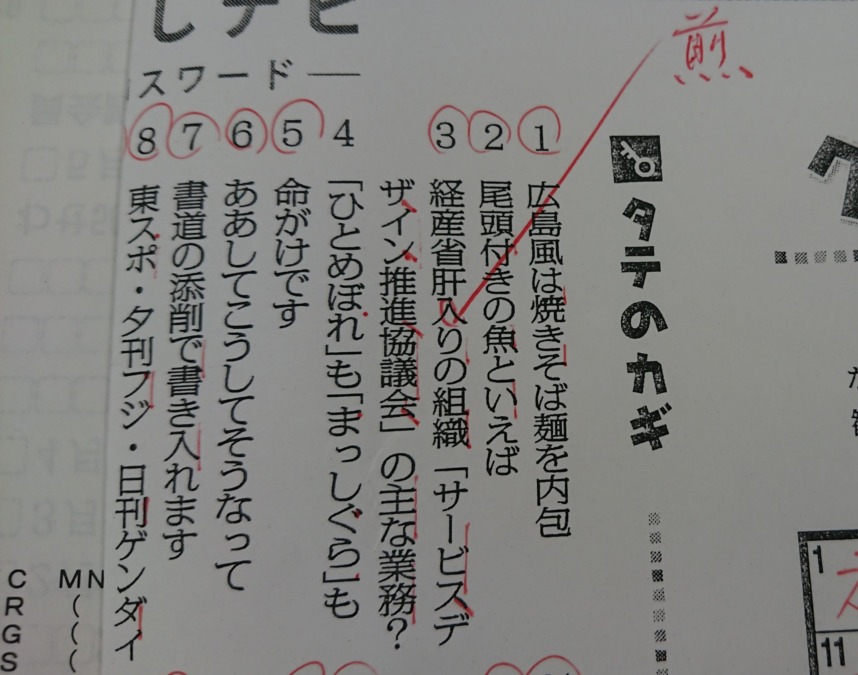 煎
タテのカギ
1 広島風は焼きそば麺を内包
2 尾頭付きの魚といえば
3 経産省肝入りの組織「サービスデ
ザイン推進協議会」の主な業務？
4 「ひとめぼれ」も「まっしぐら」も
5 命がけです
6 ああしてこうしてそうなって
7 書道の添削で書き入れます
8 東スポ・夕刊フジ・日刊ゲンダイ
スワード
1
11
MN
C
R
G
S